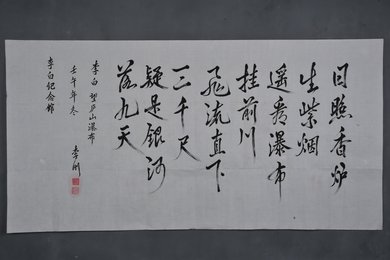 日照香炉
生紫烟
遥看瀑布
挂前川
飛流直下
三千尺
疑是銀河
落九天
李白 望庐山瀑布
壬午年冬
李白纪念馆